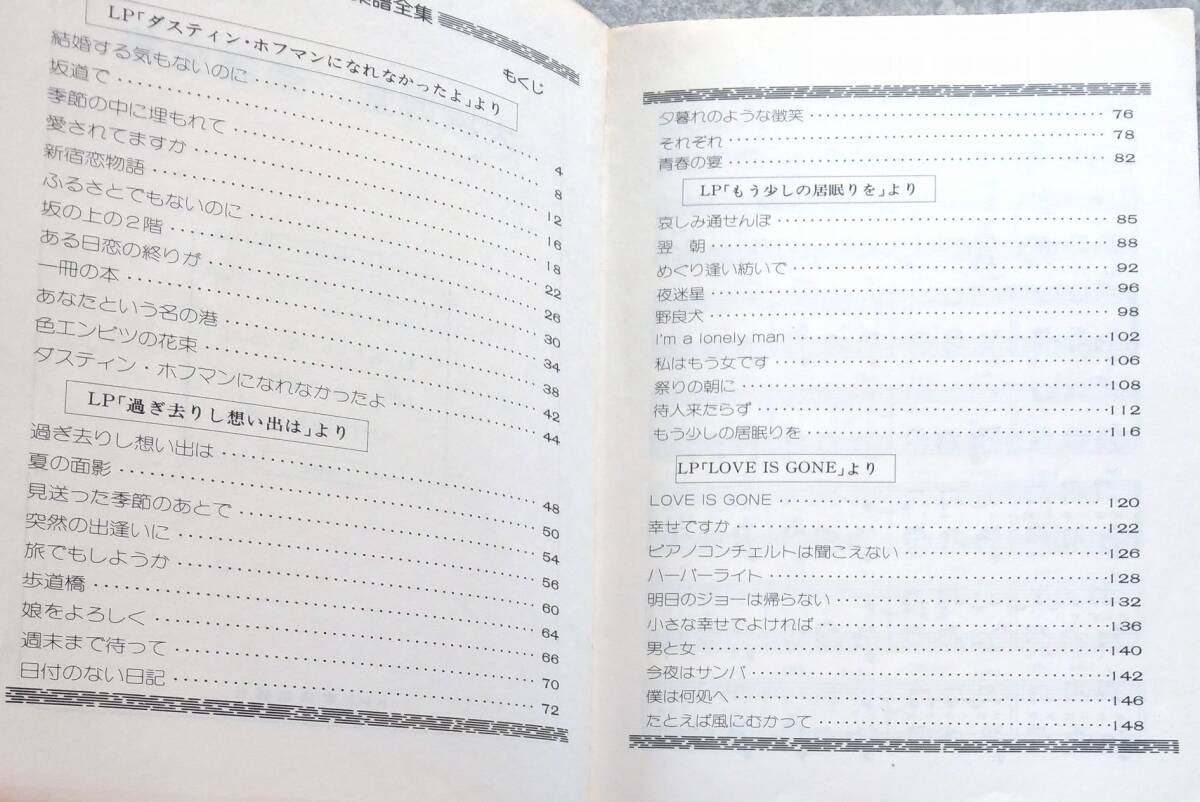 譜全集
もくじ
LP「ダスティン・ホフマンになれなかったよ」より
結婚する気もないのに 4
坂道で 8
季節の中に埋もれて 12
愛されてますか 16
新宿恋物語 18
ふるさとでもないのに 22
坂の上の2階 26
ある日恋の終りが 30
一冊の本 34
あなたという名の港 38
色エンピツの花束 42
ダスティン・ホフマンになれなかったよ 44
LP「過ぎ去りし想い出は」より
過ぎ去りし想い出は 48
夏の面影 50
見送った季節のあとで 54
突然の出逢いに 56
旅でもしようか 60
歩道橋 64
娘をよろしく 66
週末まで待って 70
日付のない日記 72
夕暮れのような微笑 76
それぞれ 78
青春の宴 82
LP「もう少しの居眠りを」より
哀しみ通せんぼ 85
翌 朝 88
めぐり逢い紡いで 92
夜迷星 96
野良犬 98
I'm a lonely man 102
私はもう女です 106
祭りの朝に 108
待人来たらず 112
もう少しの居眠りを 116
LP「LOVE IS GONE」より
LOVE IS GONE 120
幸せですか 122
ピアノコンチェルトは聞こえない 126
ハーバーライト 128
明日のジョーは帰らない 132
小さな幸せでよければ 136
男と女 140
今夜はサンバ 142
僕は何処へ 146
たとえば風にむかって 148